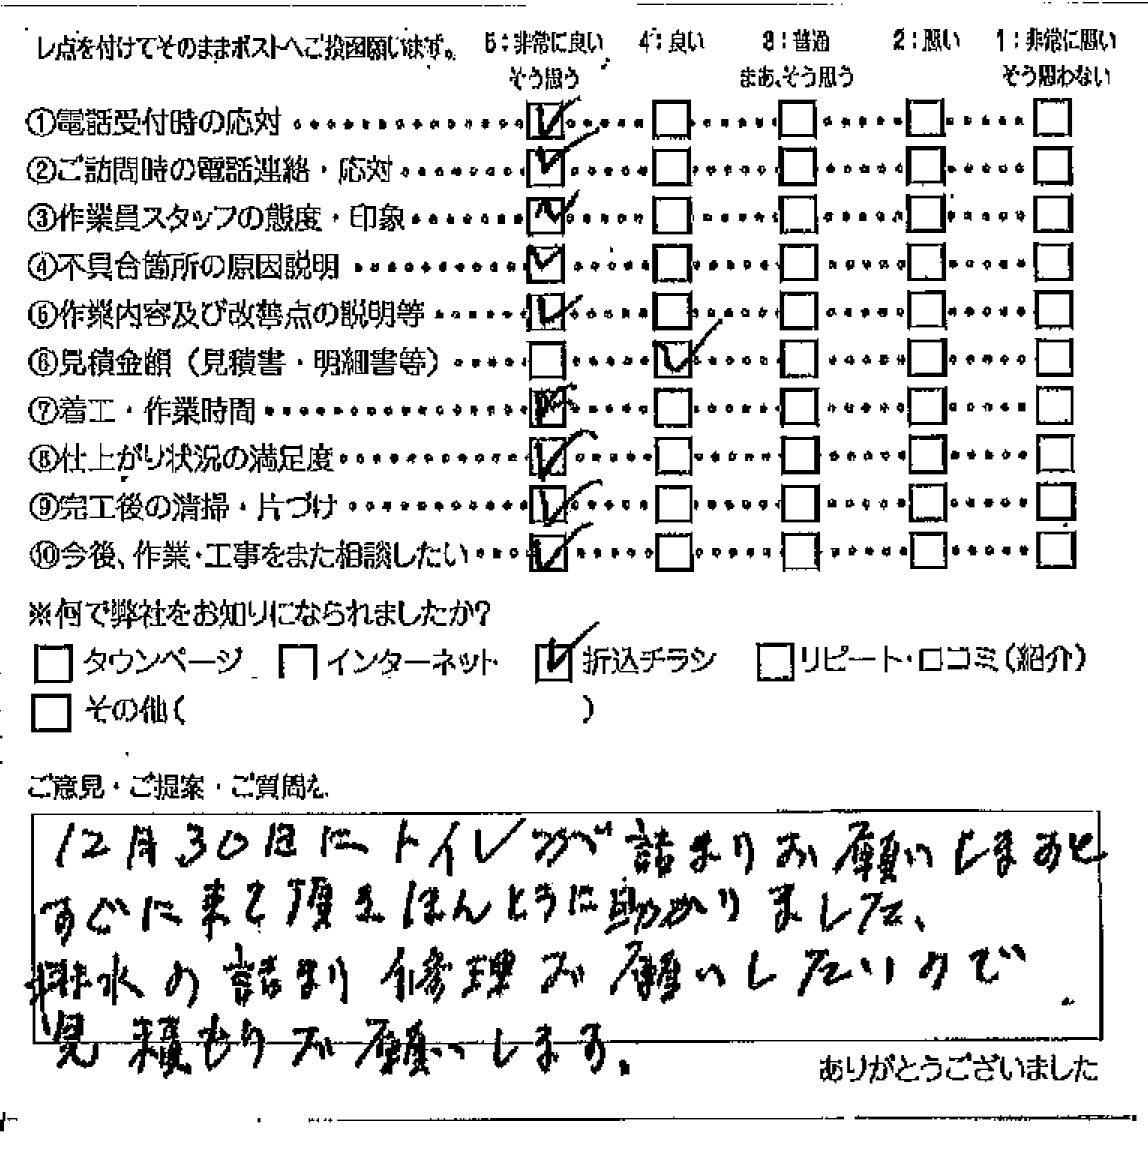 レ点を付けてそのままポストへご投函願います。 5:非常に良い 4:良い 3:普通 2:悪い 1:非常に悪い
そう思う まあ、そう思う そう思わない
①電話受付時の応対
②ご訪問時の電話連絡・応対
③作業員スタッフの態度・印象
④不具合箇所の原因説明
⑤作業内容及び改善点の説明等
⑥見積金額（見積書・明細書等）
⑦着工・作業時間
⑧仕上がり状況の満足度
⑨完工後の清掃・片づけ
⑩今後、作業・工事をまた相談したい
※何で弊社をお知りになられましたか?
タウンページ インターネット 折込チラシ リピート・口コミ(紹介)
その他( )
ご意見・ご提案・ご質問を
12月30日にトイレが詰まりお願いしますと
すぐに来て頂きほんとうに助かりました、
排水の詰まり修理お願いしたいので
見積もりお願いします。
ありがとうございました